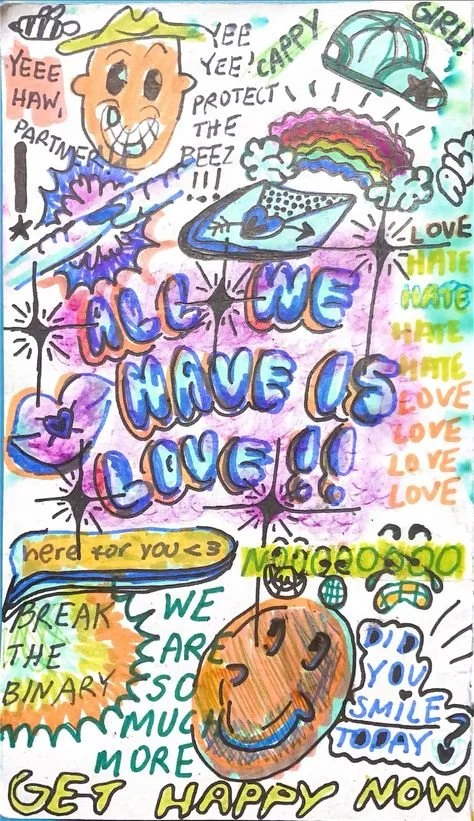 YEEE
HAW,
PARTNER!
YEE
YEE!
PROTECT
THE
BEEZ
!!!
CAPPY
GIRL!
ALL WE
HAVE IS
LOVE!!
LOVE
HATE
HATE
HATE
HATE
LOVE
LOVE
LOVE
LOVE
here for you <3
NOOOOOOOO
BREAK
THE
BINARY
WE
ARE
SO
MUCH
MORE
DID
YOU
SMILE
TODAY?
GET HAPPY NOW